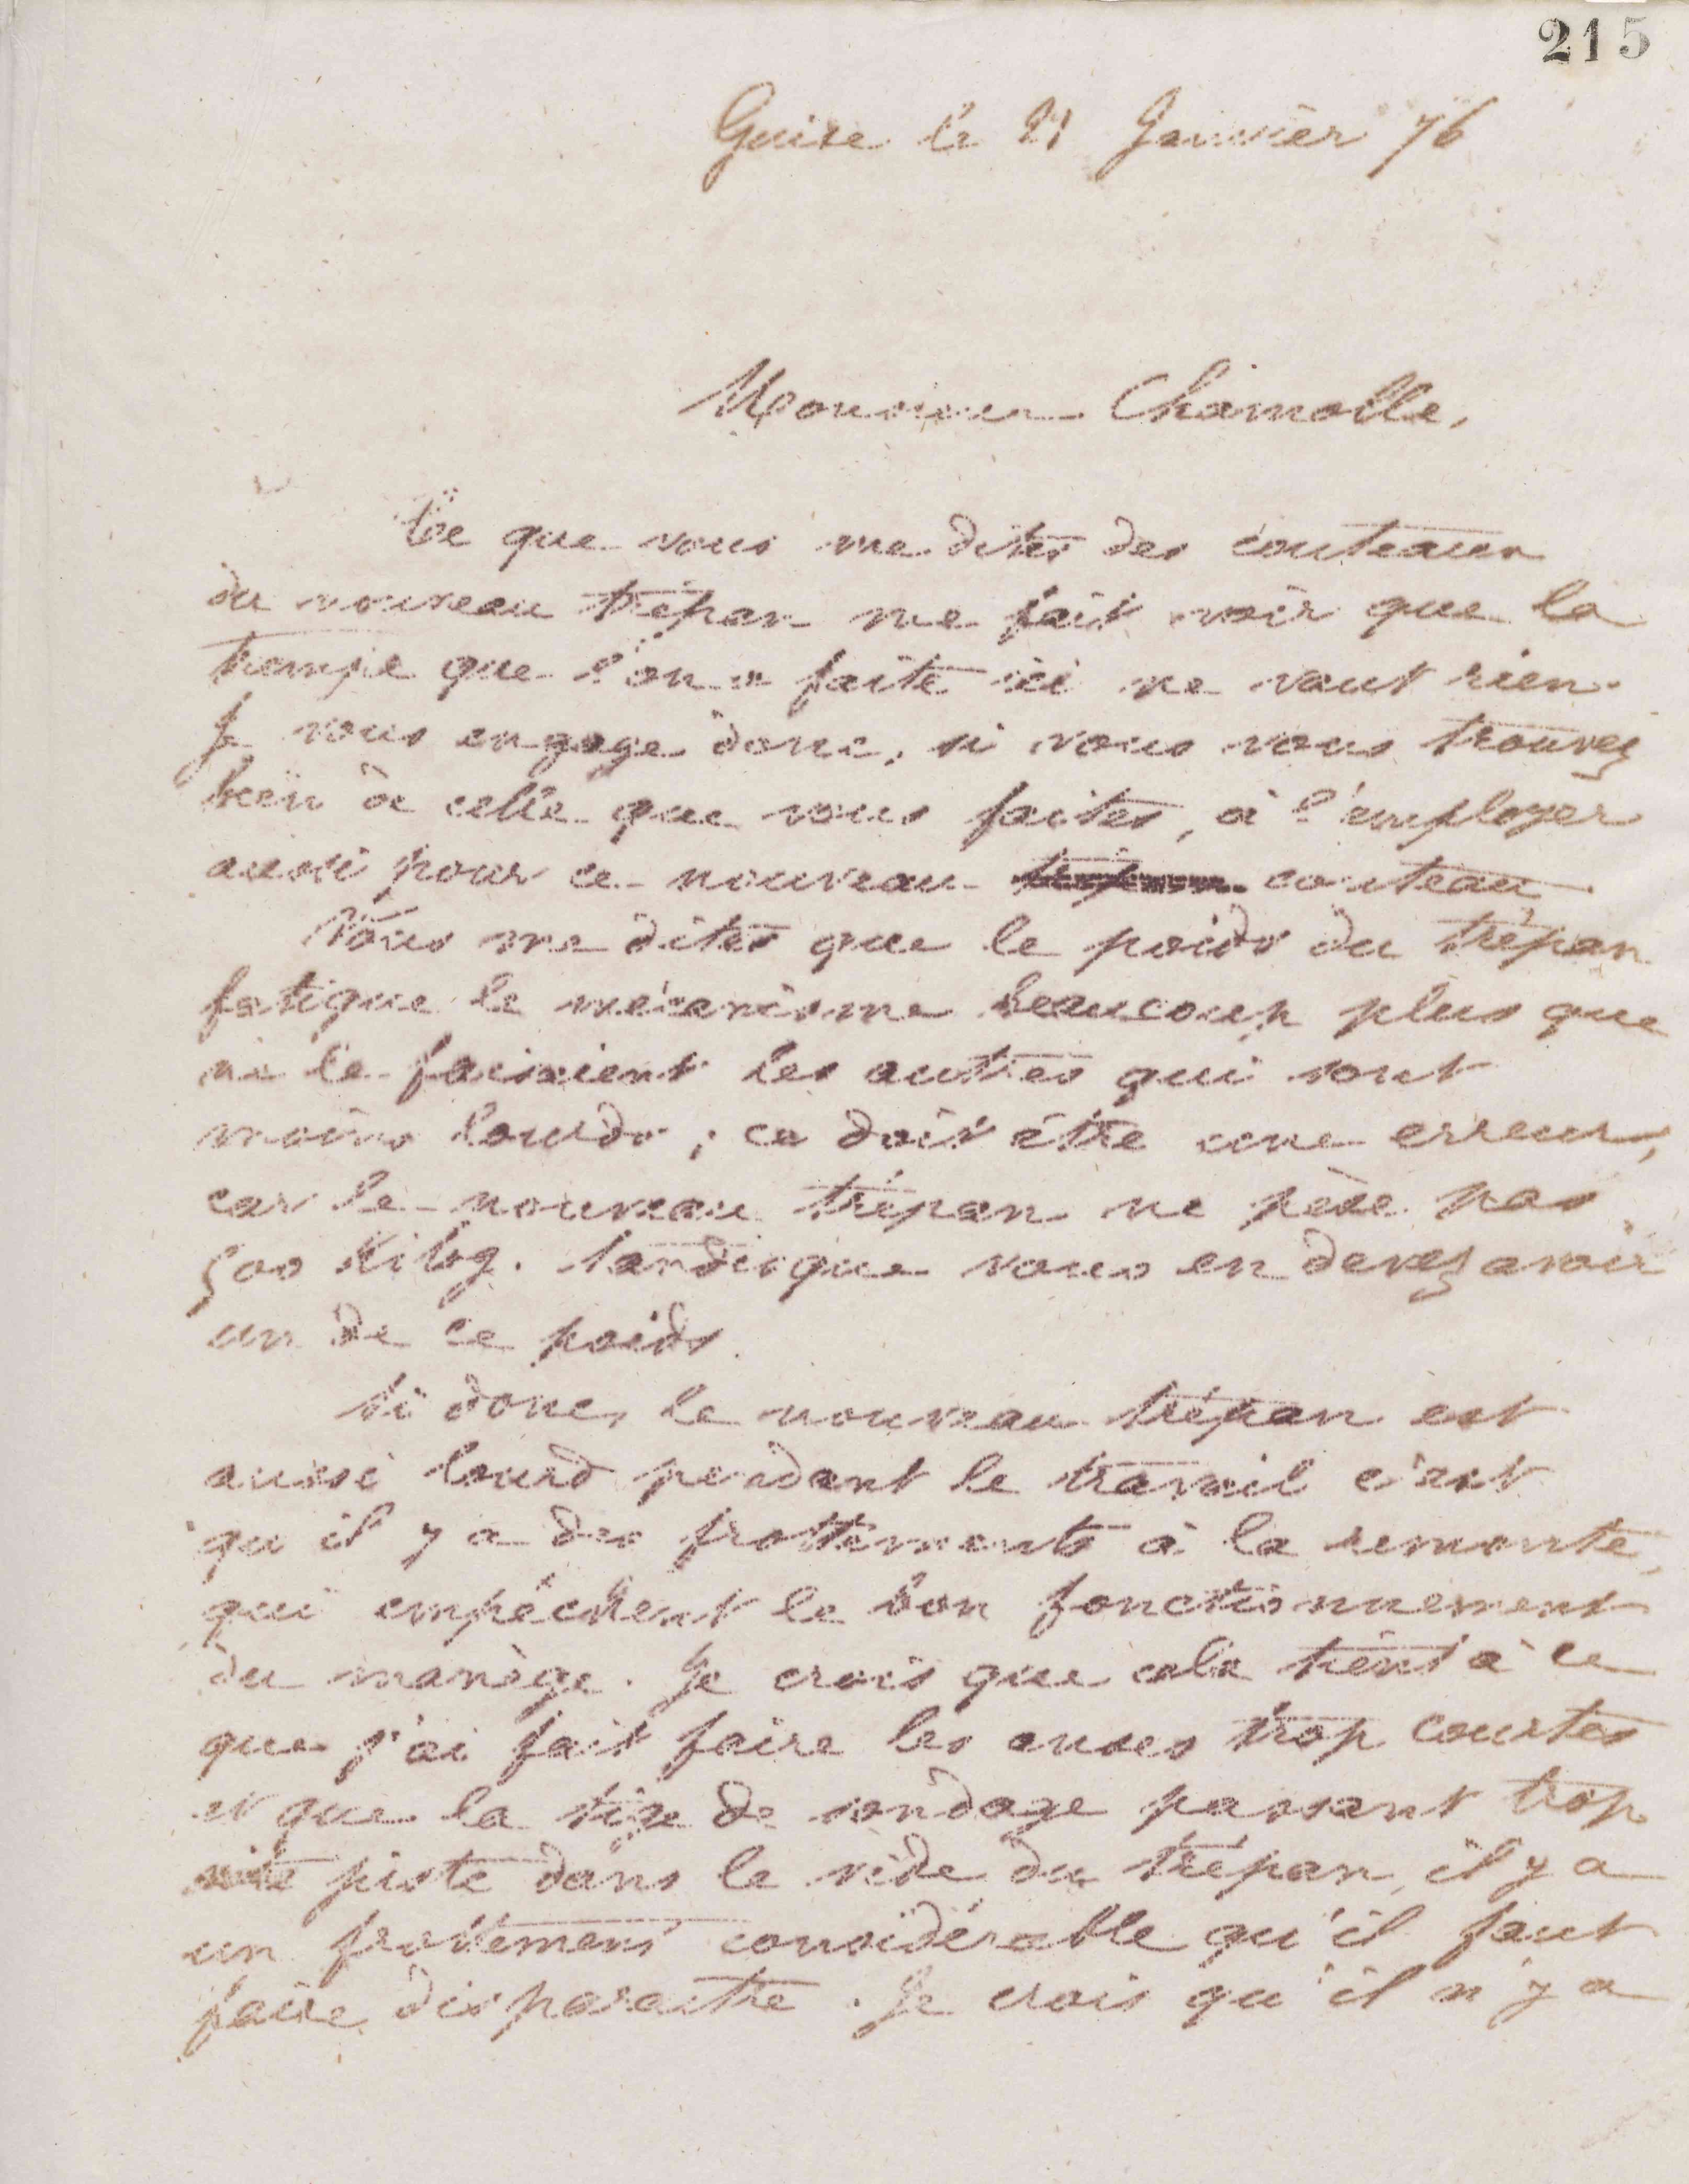 215
Guise le 21 Janvier 76
Monsieur Chamolle,
Ce que vous me dites des couteaux
du nouveau trépan me fait voir que la
trempe que l'on a faite ici ne vaut rien.
Je vous engage donc, si vous vous trouvez
bien de celle que vous faites, à l'employer
aussi pour ce nouveau couteau.
Vous me dites que le poids du trépan
fatigue le mécanisme beaucoup plus que
ne le faisaient les autres qui sont
moins lourds ; ce doit être une erreur,
car le nouveau trépan ne pèse pas
500 Kilog. tandis que vous en devez avoir
un de ce poids.
Si donc, le nouveau trépan est
aussi lourd pendant le travail c'est
qu'il y a des frottements à la remonte,
qui empêchent le bon fonctionnement
du manège. Je crois que cela tient à ce
que j'ai fait faire les anses trop courtes
et que la tige de sondage passant trop
vite dans le vide du trépan, il y a
un frottement considérable qu'il faut
faire disparaitre. Je crois qu'il n'y a